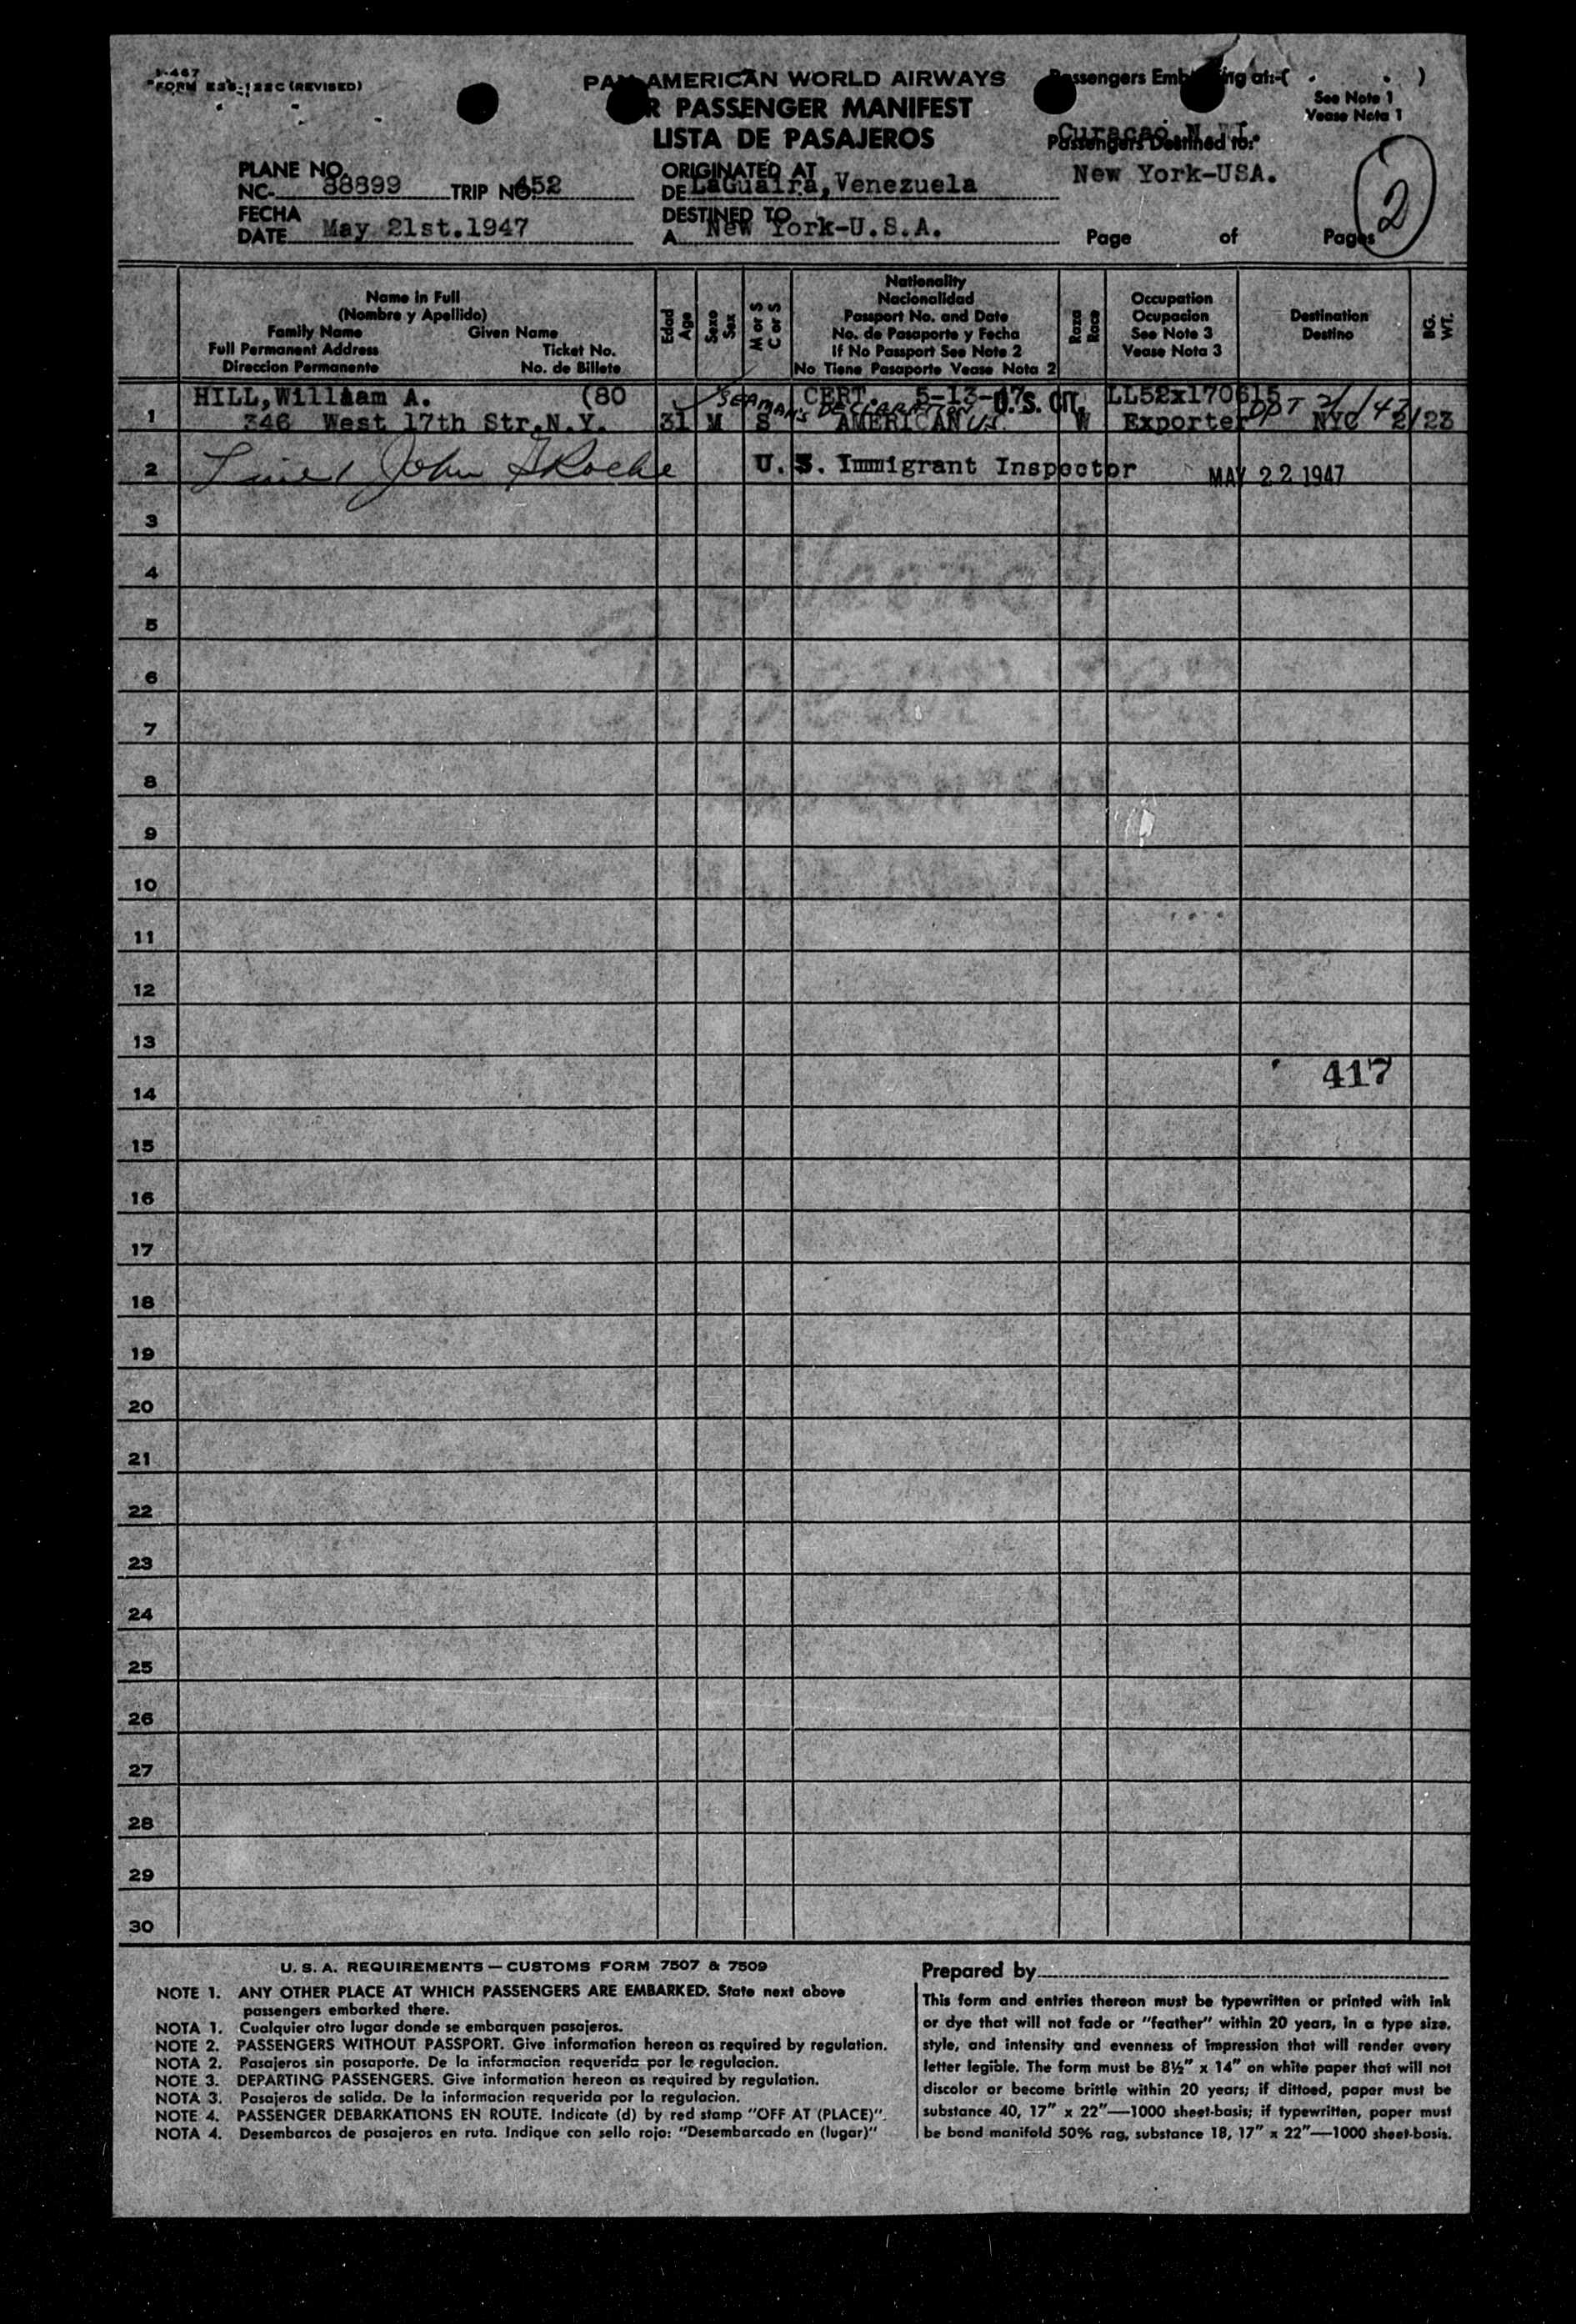 I-467
FORM (REVISED)
PAN AMERICAN WORLD AIRWAYS
R PASSENGER MANIFEST
LISTA DE PASAJEROS
Passengers Emb ing at:-( )
See Note 1
Vease Nota 1
Curacao, N.W.I.
Passengers Destined to:
New York-USA.
PLANE NO.
NC- 88899 TRIP NO. 452
ORIGINATED AT
DE LaGuaira, Venezuela
FECHA
DATE May 21st.1947
DESTINED TO
A New York-U.S.A.
Page of Pages
2
Name in Full
(Nombre y Apellido)
Family Name Given Name
Full Permanent Address Ticket No.
Direccion Permanente No. de Billete
Edad
Age
Sexo
Sex
M or S
C or S
Nationality
Nacionalidad
Passport No. and Date
No. de Pasaporte y Fecha
If No Passport See Note 2
No Tiene Pasaporte Vease Nota 2
Raza
Race
Occupation
Ocupacion
See Note 3
Vease Nota 3
Destination
Destino
BG.
WT.
HILL,William A. (80 SEAMAN'S DECLARATION CERT. 5-13-47 U.S. CIT. LL52x170615
1 346 West 17th Str.N.Y. 31 M S AMERICAN U.S. W Exporter NYC 2/23
2 John Roche U. S. Immigrant Inspector MAY 22 1947
3
4
5
6
7
8
9
10
11
12
13
417
14
15
16
17
18
19
20
21
22
23
24
25
26
27
28
29
30
U. S. A. REQUIREMENTS — CUSTOMS FORM 7507 & 7509
NOTE 1. ANY OTHER PLACE AT WHICH PASSENGERS ARE EMBARKED. State next above
passengers embarked there.
NOTA 1. Cualquier otro lugar donde se embarquen pasajeros.
NOTE 2. PASSENGERS WITHOUT PASSPORT. Give information hereon as required by regulation.
NOTA 2. Pasajeros sin pasaporte. De la informacion requerida por la regulacion.
NOTE 3. DEPARTING PASSENGERS. Give information hereon as required by regulation.
NOTA 3. Pasajeros de salida. De la informacion requerida por la regulacion.
NOTE 4. PASSENGER DEBARKATIONS EN ROUTE. Indicate (d) by red stamp "OFF AT (PLACE)".
NOTA 4. Desembarcos de pasajeros en ruta. Indique con sello rojo: "Desembarcado en (lugar)"
Prepared by
This form and entries thereon must be typewritten or printed with ink
or dye that will not fade or "feather" within 20 years, in a type size,
style, and intensity and evenness of impression that will render every
letter legible. The form must be 8½" x 14" on white paper that will not
discolor or become brittle within 20 years; if dittoed, paper must be
substance 40, 17" x 22"—1000 sheet-basis; if typewritten, paper must
be bond manifold 50% rag, substance 18, 17" x 22"—1000 sheet-basis.